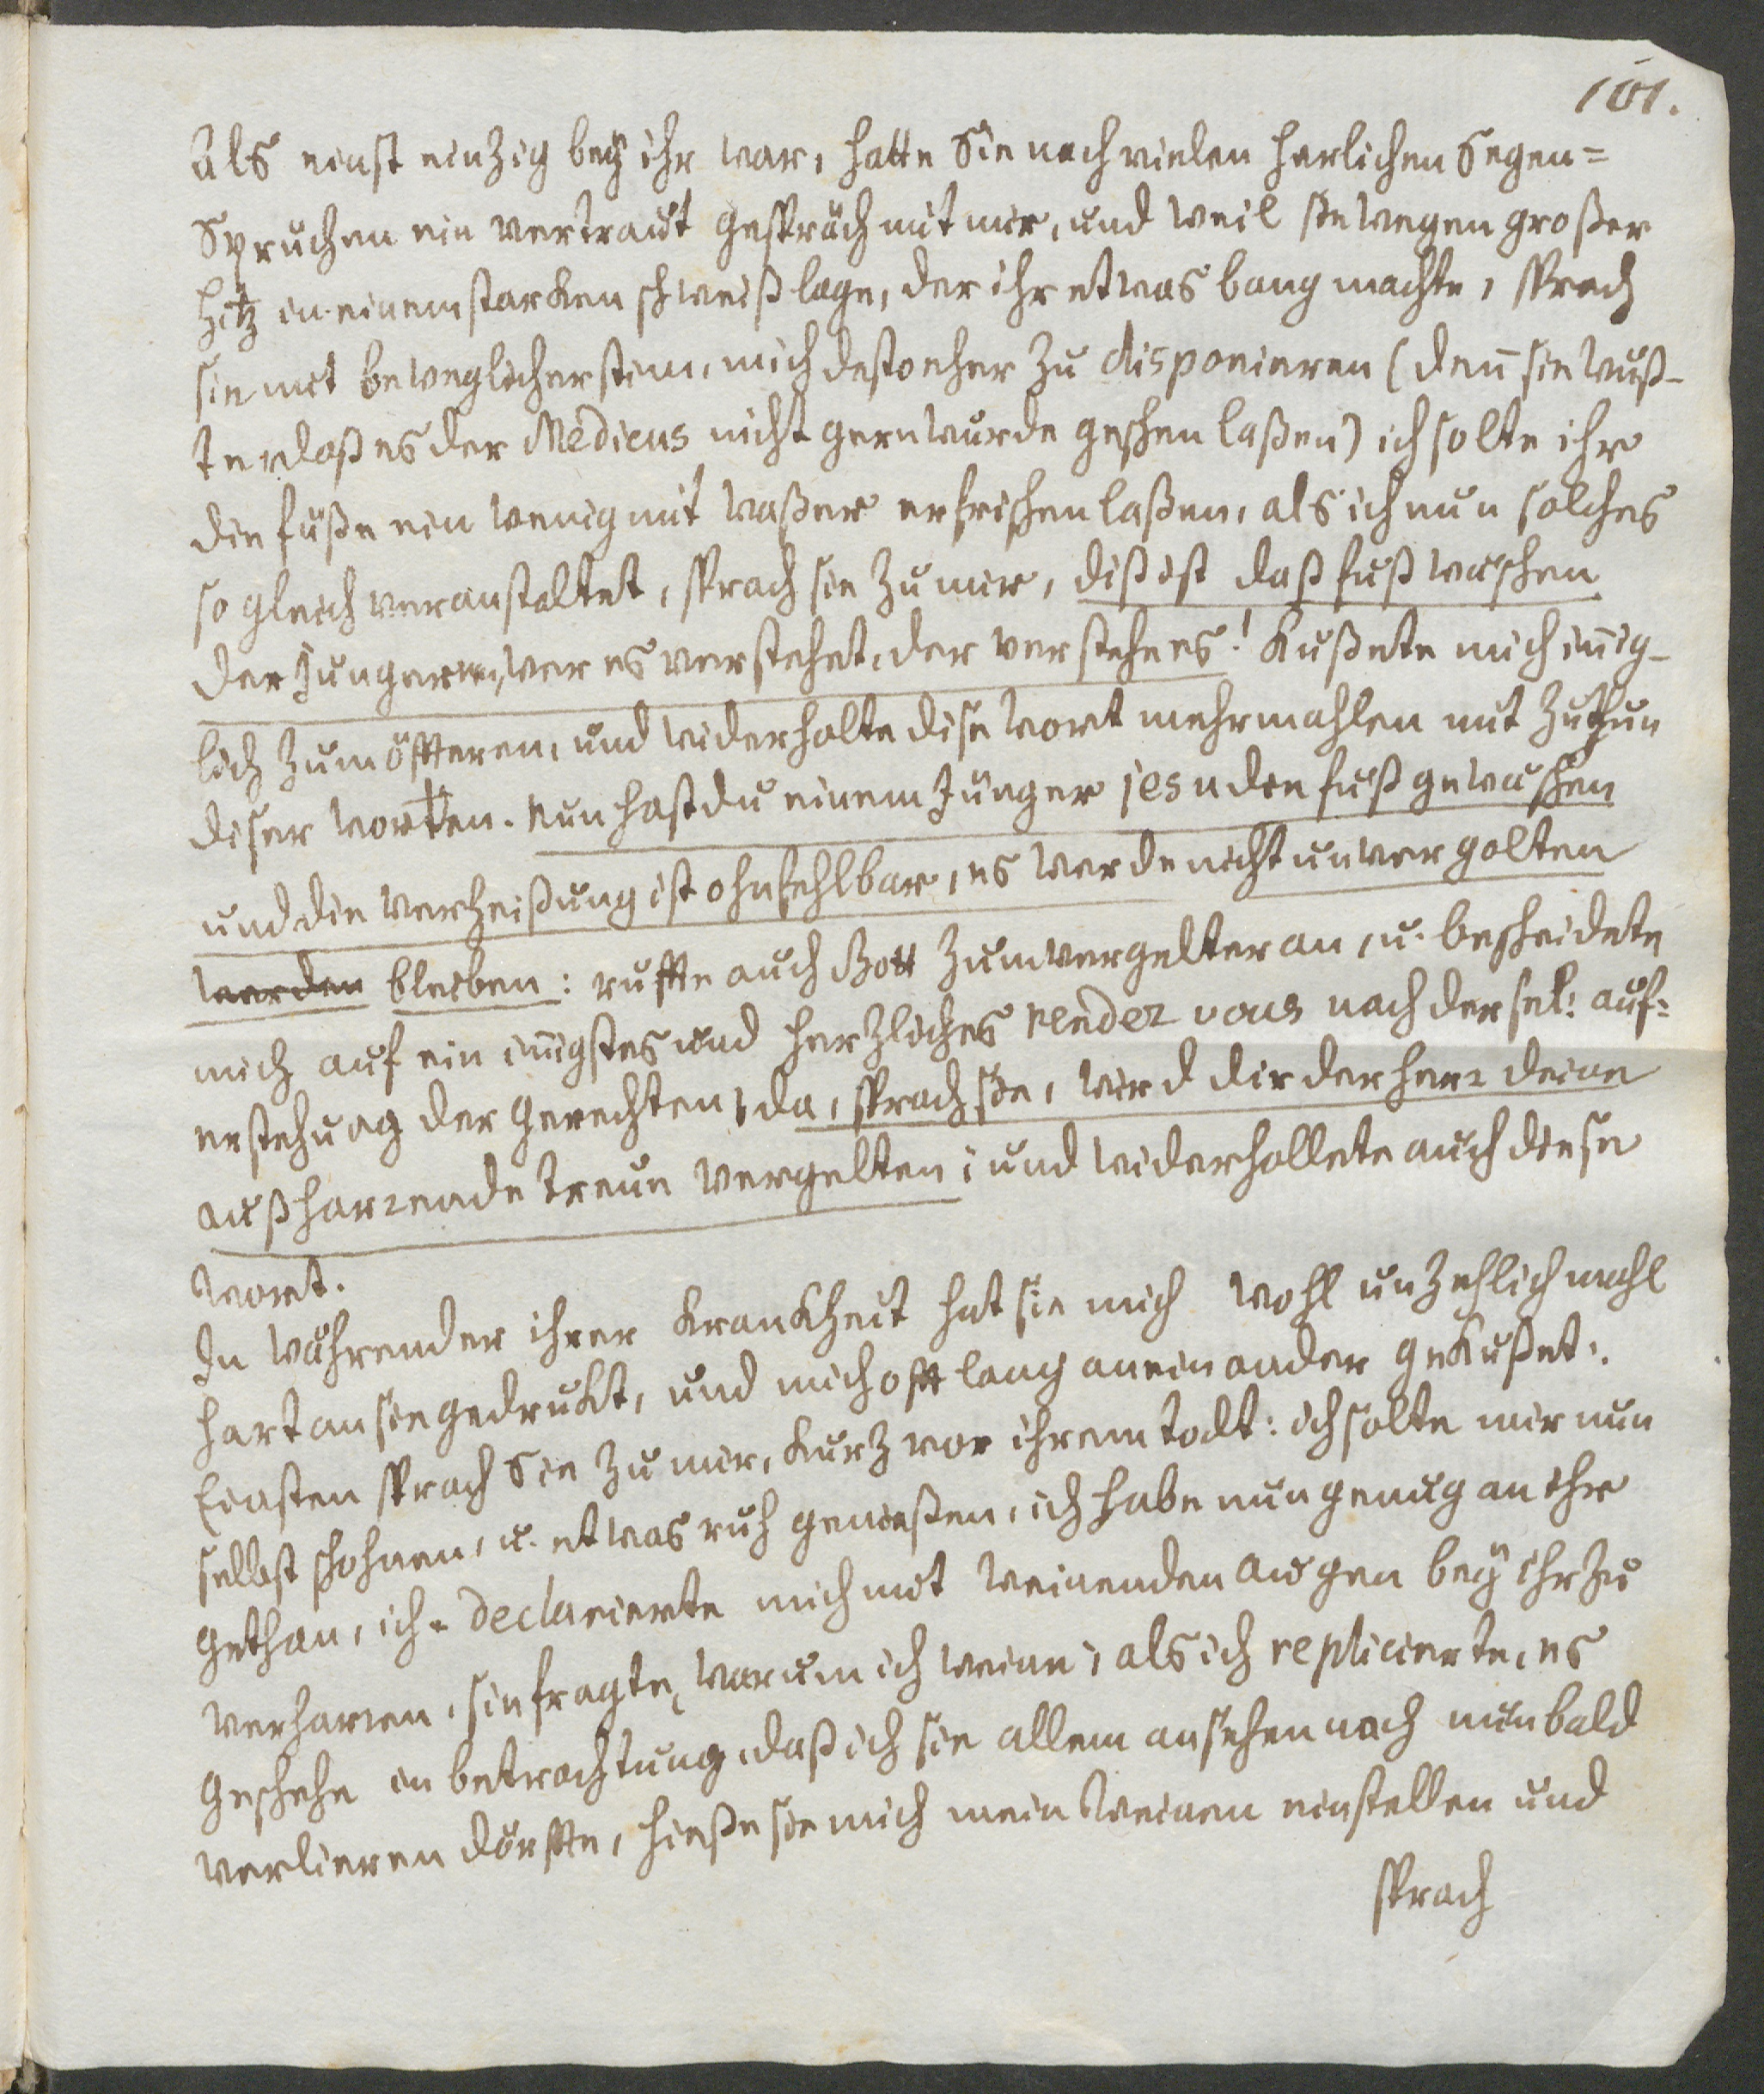 101.
Als einst einzig bey ihr war, hatte Sie nach vielen herlichen Segen=
Spruchen ein vertraut gespräch mit mir, und weil sie wegen großer
hitz in einem starken schweiß lage, der ihr etwas bang machte, sprach
sie mit beweglicher stim, mich desto eher zu disponieren (den̄ sie wuß-
te daß es der Medicus nicht gern wurde geschen laßen) ich solte ihr
die fuße ein wenig mit waßer erfrischen laßen, als ich nun solches
so gleich veranstaltet, sprach sie zu mir, diß ist daß fuß waschen
der Jungeren, wer es verstehet, der verstehe es! Kußete mich in̄ig-
lich zum öffteren, und widerholte dise wort mehrmahlen mit zuthun
diser worten. nun hast du einem Junger jesu die fuß gewaschen
und die verheißung ist ohnfehlbar, es werde nicht unvergolten
werden bleiben: ruffte auch Gott zum vergelter an, u. bescheidete
mich auf ein in̄igstes und herzliches rendez vous nach der sel: auf=
erstehung der Gerechten, da, sprach sie, wird dir der herr deine
außharrende treue vergelten; und widerhollete auch diese
wort.
In währender ihrer Krankheit hat sie mich wohl unzehlich mahl
hart an sie gedrukt, und mich offt lang an einander gekußet.
Einsten sprach Sie zu mir, kurz vor ihrem todt: ich solte mir nun
selbst schohnen, u. etwas ruh genießen, ich habe nun genug an ihr
gethan, ich declarierte mich mit weinenden augen bey ihr zu
verharren, sie fragte, warum ich weine; als ich replicierte, es
geschehe in betrachtung, daß ich sie allem ansehen nach nun bald
verlieren dörffte, hieße sie mich mein weinen einstellen und
sprach